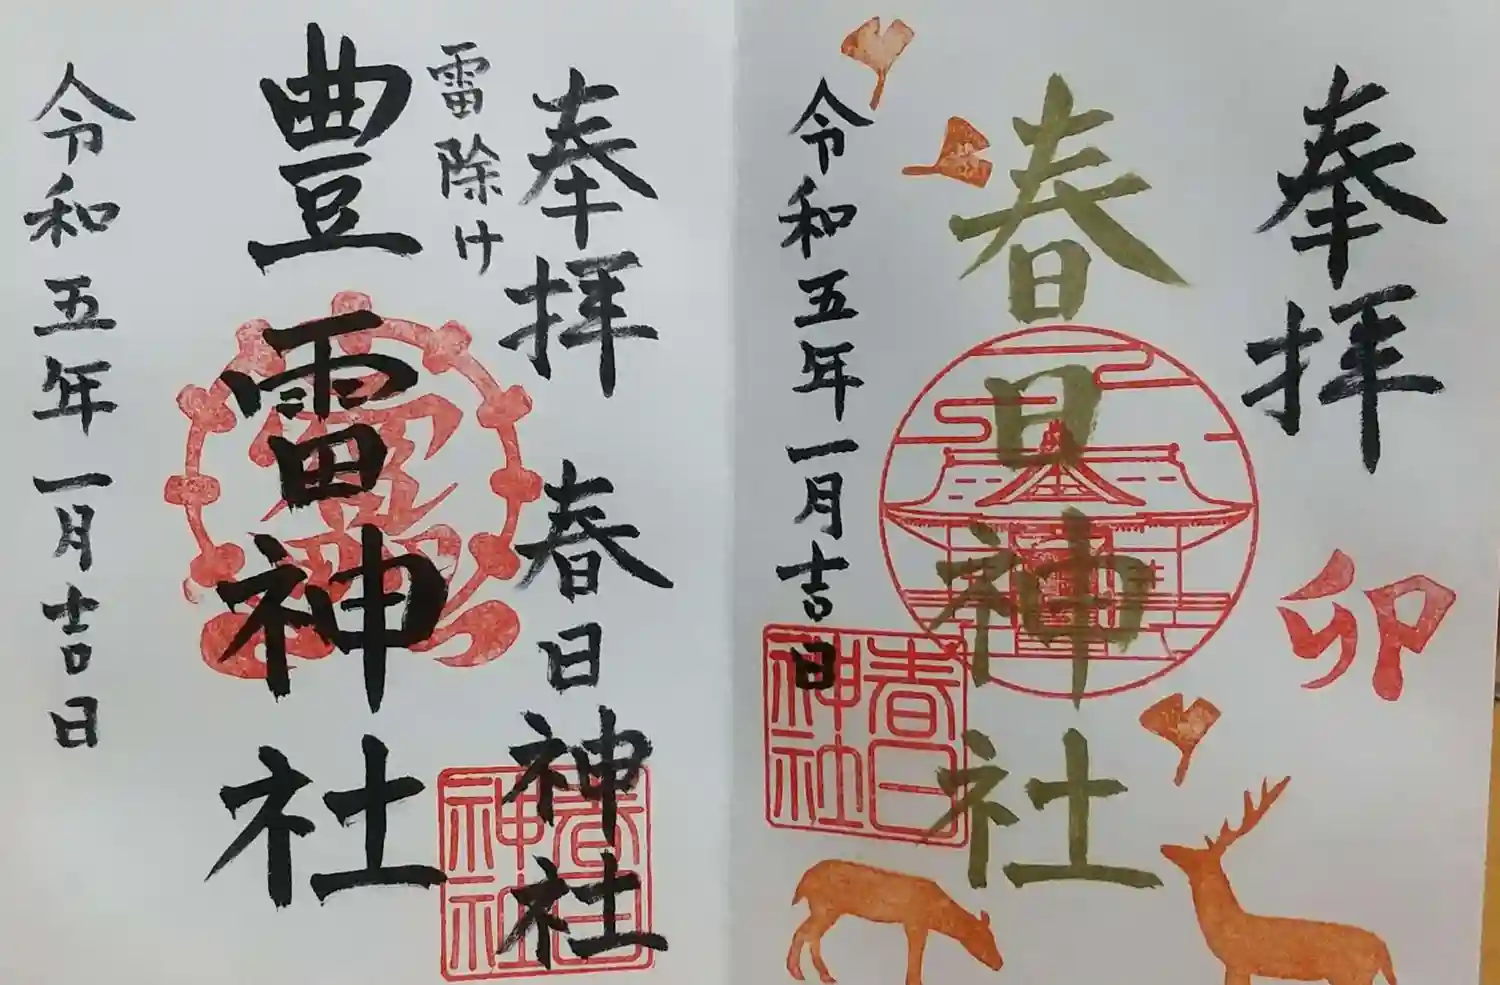 奉拝
卯
春日神社
令和五年一月吉日
春日神社
奉拝 春日神社
雷除け
豊雷神社
令和五年一月吉日
春日神社